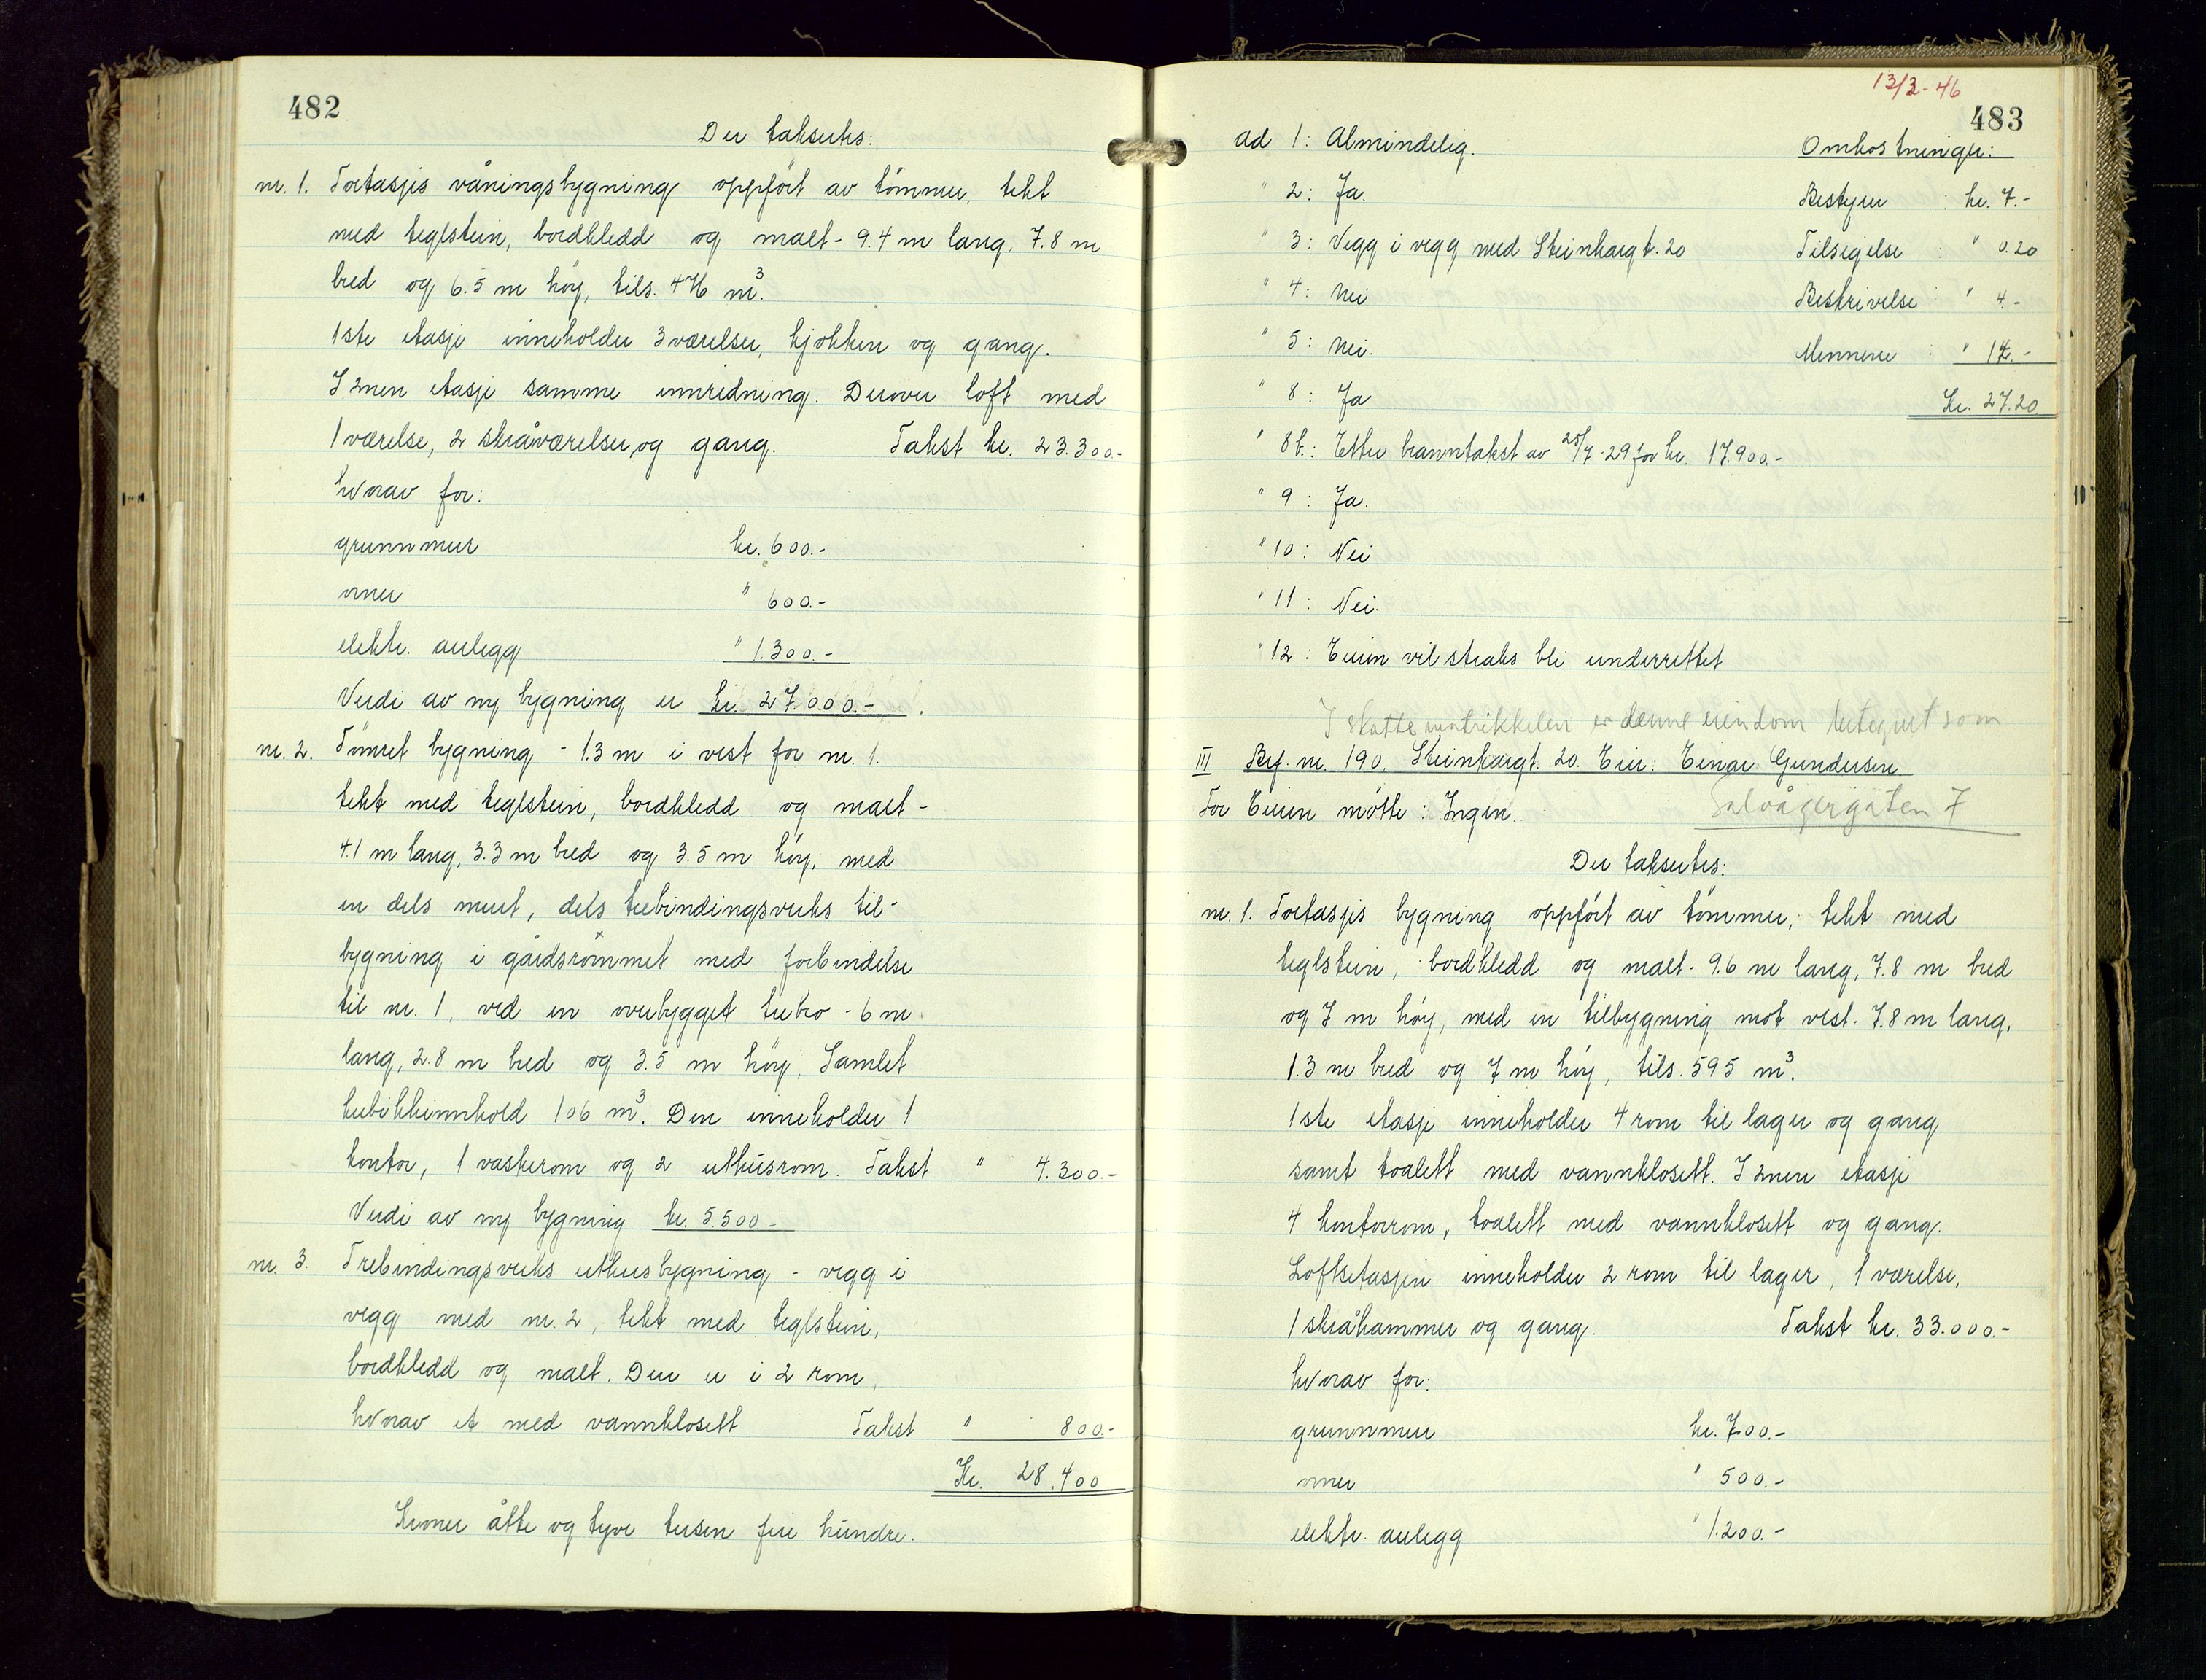 482
Der taksertes:
nr. 1. Toetasjes våningsbygning oppført av tømmer, tekt
med teglstein, bordkledd og malt - 9.4 m lang, 7.8 m
bred og 6.5 m høy, tils. 476 m³.
1ste etasje inneholder 3 værelser, kjøkken og gang.
I 2nen etasje samme innredning. Derover loft med
1 værelse, 2 skråværelser, og gang. Takst kr. 23.300.-
hvorav for:
grunnmur kr. 600.-
ovner " 600.-
elektr. anlegg " 1.300.-
Verdi av ny bygning er kr. 27.000.-.
nr. 2. Tømret bygning - 1.3 m i vest for nr. 1.
tekt med teglstein, bordkledd og malt -
4.1 m lang, 3.3 m bred og 3.5 m høy, med
en dels murt, dels trebindingsverks til-
bygning i gårdsrommet med forbindelse
til nr. 1, ved en overbygget trebro - 6 m
lang, 2.8 m bred og 3.5 m høy. Samlet
kubikkinnhold 106 m³. Den inneholder 1
kontor, 1 vaskerom og 2 uthusrom. Takst " 4.300.-
Verdi av ny bygning kr. 5.500.-
nr. 3. Trebindingsverks uthusbygning - vegg i
vegg med nr. 2, tekt med teglstein,
bordkledd og malt. Den er i 2 rom,
hvorav et med vannklosett Takst " 800.-
Kr. 28.400
Kroner åtte og tyve tusen fire hundre.
13/3-46
483
ad 1: Almindelig. Omkostninger:
" 2: Ja. Bestyrer : kr. 7.-
" 3: Vegg i vegg med Steinkargt. 20 Tilsigelse : " 0.20
" 4: Nei Beskrivelse " 4.-
" 5: Nei. Mennene : " 14.-
" 8: Ja Kr. 27.20
" 8b.: Etter branntakst av 25/7-29 for kr. 17.900.-
" 9: Ja.
" 10: Nei
" 11: Nei.
" 12: Eieren vil straks bli underrettet
I skattematrikkelen er denne eiendom betegnet som
III Brf. nr. 190. Steinkargt. 20. Eier: Einar Gundersen
For Eieren møtte: Ingen. Salvågergaten 7
Der taksertes:
nr. 1. Toetasjes bygning oppført av tømmer, tekt med
teglstein, bordkledd og malt - 9.6 m lang, 7.8 m bred
og 7 m høy, med en tilbygning mot vest. 7.8 m lang,
1.3 m bred og 7 m høy, tils. 595 m³.
1ste etasje inneholder 4 rom til lager og gang
samt toalett med vannklosett. I 2nen etasje
4 kontorrom, toalett med vannklosett og gang.
Loftsetasjen inneholder 2 rom til lager, 1 værelse,
1 skråkammer og gang. Takst kr. 33.000.-
hvorav for:
grunnmur kr. 700.-
ovner " 500.-
elektr. anlegg " 1.200.-